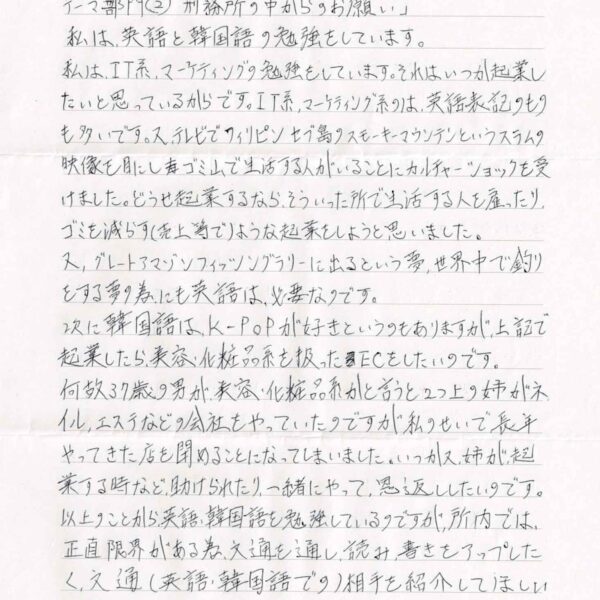 テーマ部門(2) 刑務所の中からのお願い」
私は、英語と韓国語の勉強をしています。
私は、IT系、マーケティングの勉強をしています。それはいつか起業し
たいと思っているからです。IT系、マーケティング系のは、英語表記のもの
も多いです。又、テレビでフィリピン セブ島のスモーキーマウンテンというスラムの
映像を目にし ゴミ山で生活する人がいることにカルチャーショックを受
けました。どうせ起業するなら、そういった所で生活する人を雇ったり、
ゴミを減らす(売上等で)ような起業をしようと思いました。
又、グレートアマゾンフィッシングラリーに出るという夢、世界中で釣り
をする夢の為にも英語は、必要なのです。
次に韓国語は、K-POPが好きというのもありますが、上記で
起業したら、美容・化粧品系を扱ったECをしたいのです。
何故37歳の男が、美容・化粧品系かと言うと2つ上の姉がネ
イル、エステなどの会社をやっていたのですが私のせいで長年
やってきた店を閉めることになってしまいました。いつか又、姉が、起
業する時など、助けられたり、一緒にやって、恩返ししたいのです。
以上のことから英語・韓国語を勉強しているのですが、所内では、
正直限界がある為、文通を通し、読み、書きをアップした
く、文通(英語・韓国語での)相手を紹介してほしい